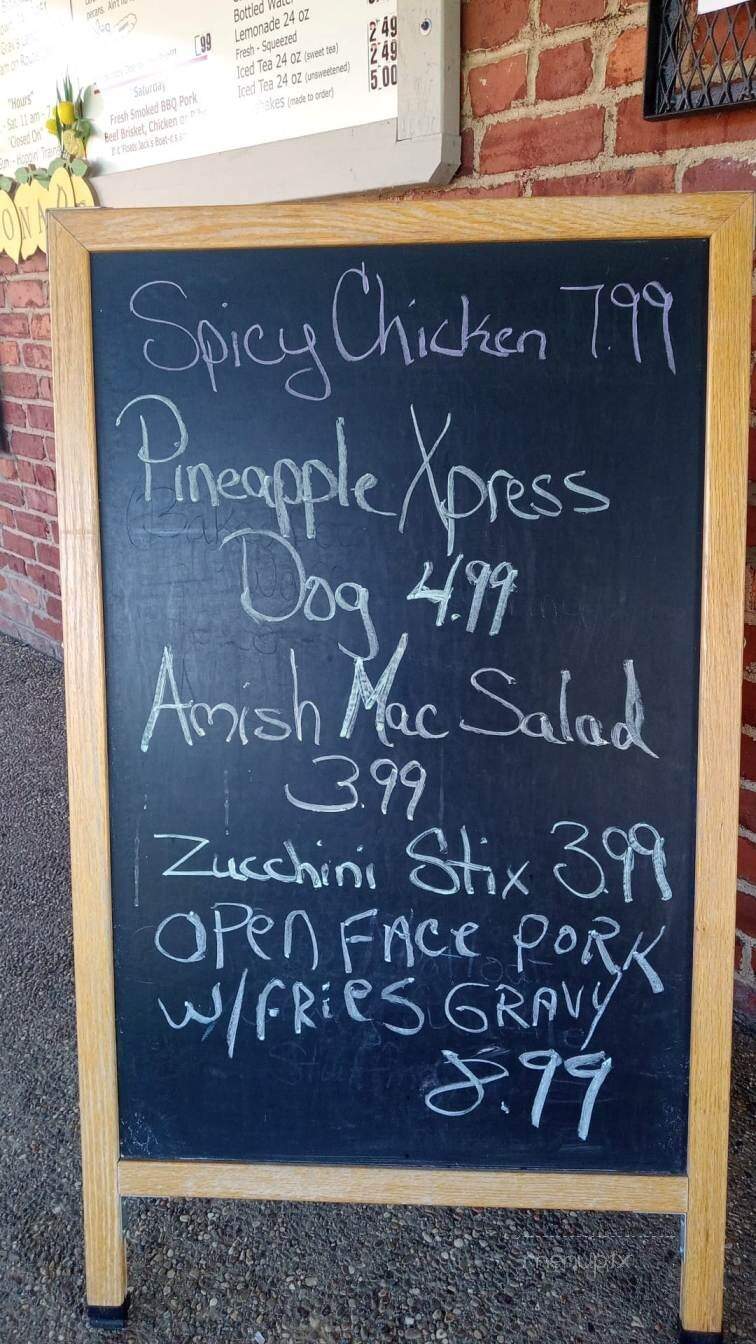 Bottled Water
Lemonade 24 oz
Fresh - Squeezed
Iced Tea 24 oz (sweet tea) 2.49
Iced Tea 24 oz (unsweetened) 2.49
(made to order) 5.00
.99
Saturday
Fresh Smoked BBQ Pork
Beef Brisket, Chicken or
"Hours"
Sat. 11 am -
"Closed On
ONAD
Spicy Chicken 7.99
Pineapple Xpress
Dog 4.99
Amish Mac Salad
3.99
Zucchini Stix 3.99
OPEN FACE PORK
W/FRIES GRAVY
8.99
menupix